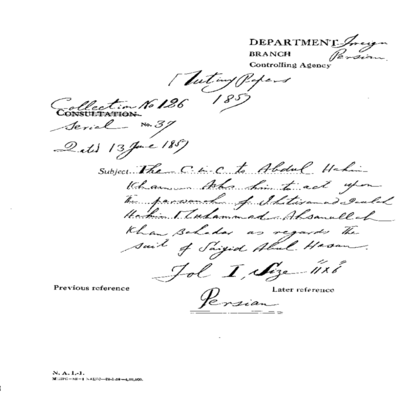 DEPARTMENT Foreign
BRANCH Persian
Controlling Agency
Mutiny Papers
1857
Collection No 126
CONSULTATION
Serial No. 37
Dated 13 June 1857
Subject The C in C to Abdul Hakim
Khan. Asks him to act upon
the parwanah of Ihtiramud Daulah
Hakim Muhammad Ahsanullah
Khan Bahadur as regards the
suit of Saiyid Abul Hasan.
Fol I, Size
Previous reference Later reference
Persian
N. A. I.-1.